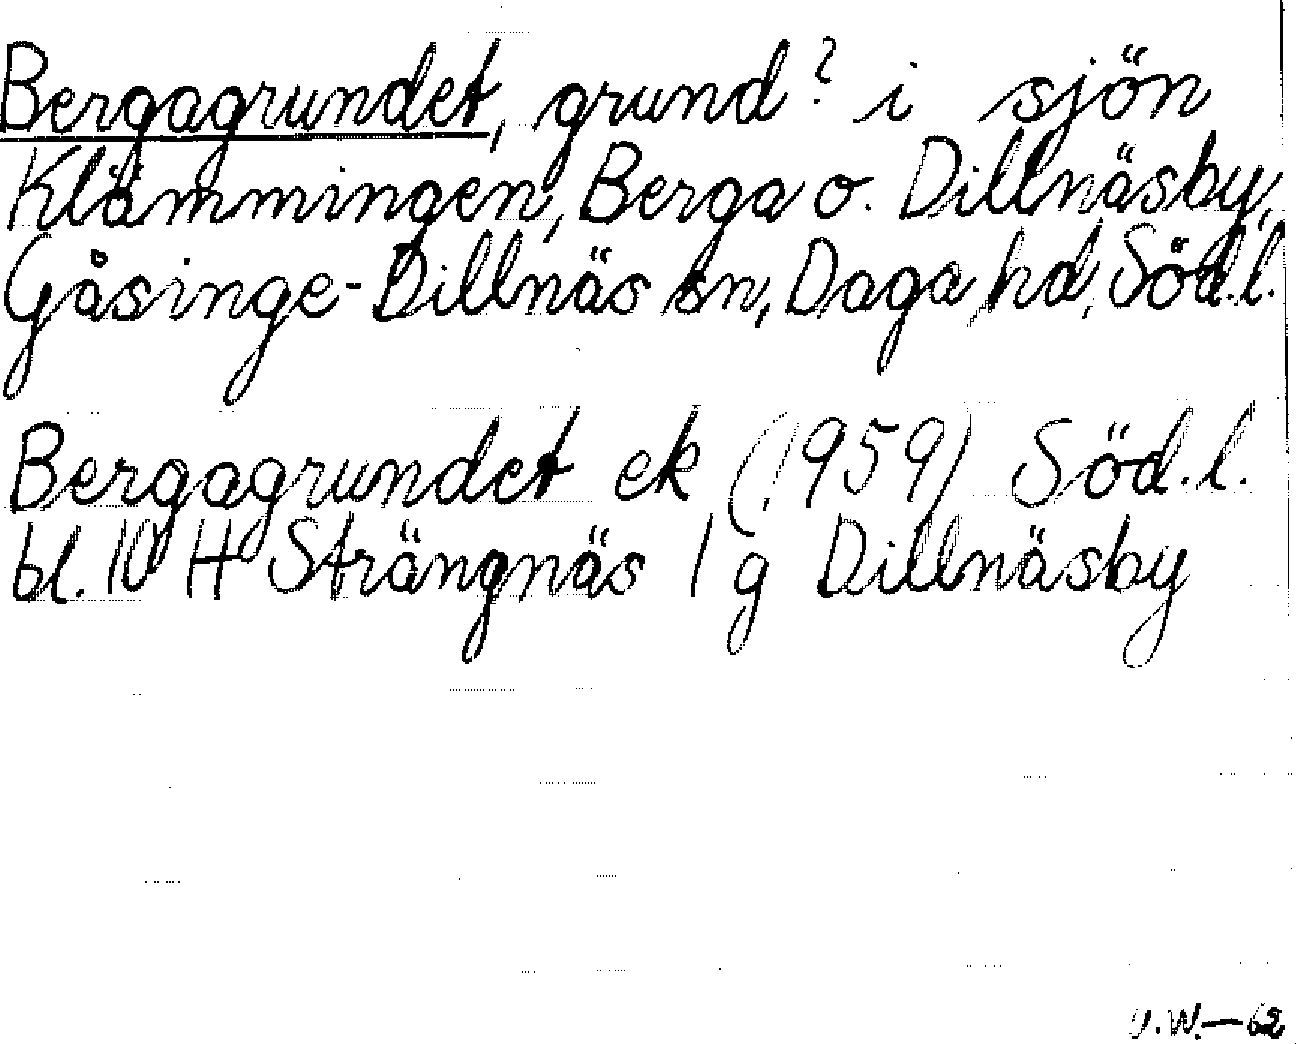 Bergagrundet, grund? i sjön
Klämmingen, Berga o. Dillnäsby,
Gåsinge-Dillnäs sn, Daga hd, Söd.l.
Bergagrundet ek (1959) Söd.l.
bl. 10 H Strängnäs 1 g Dillnäsby
W.—62